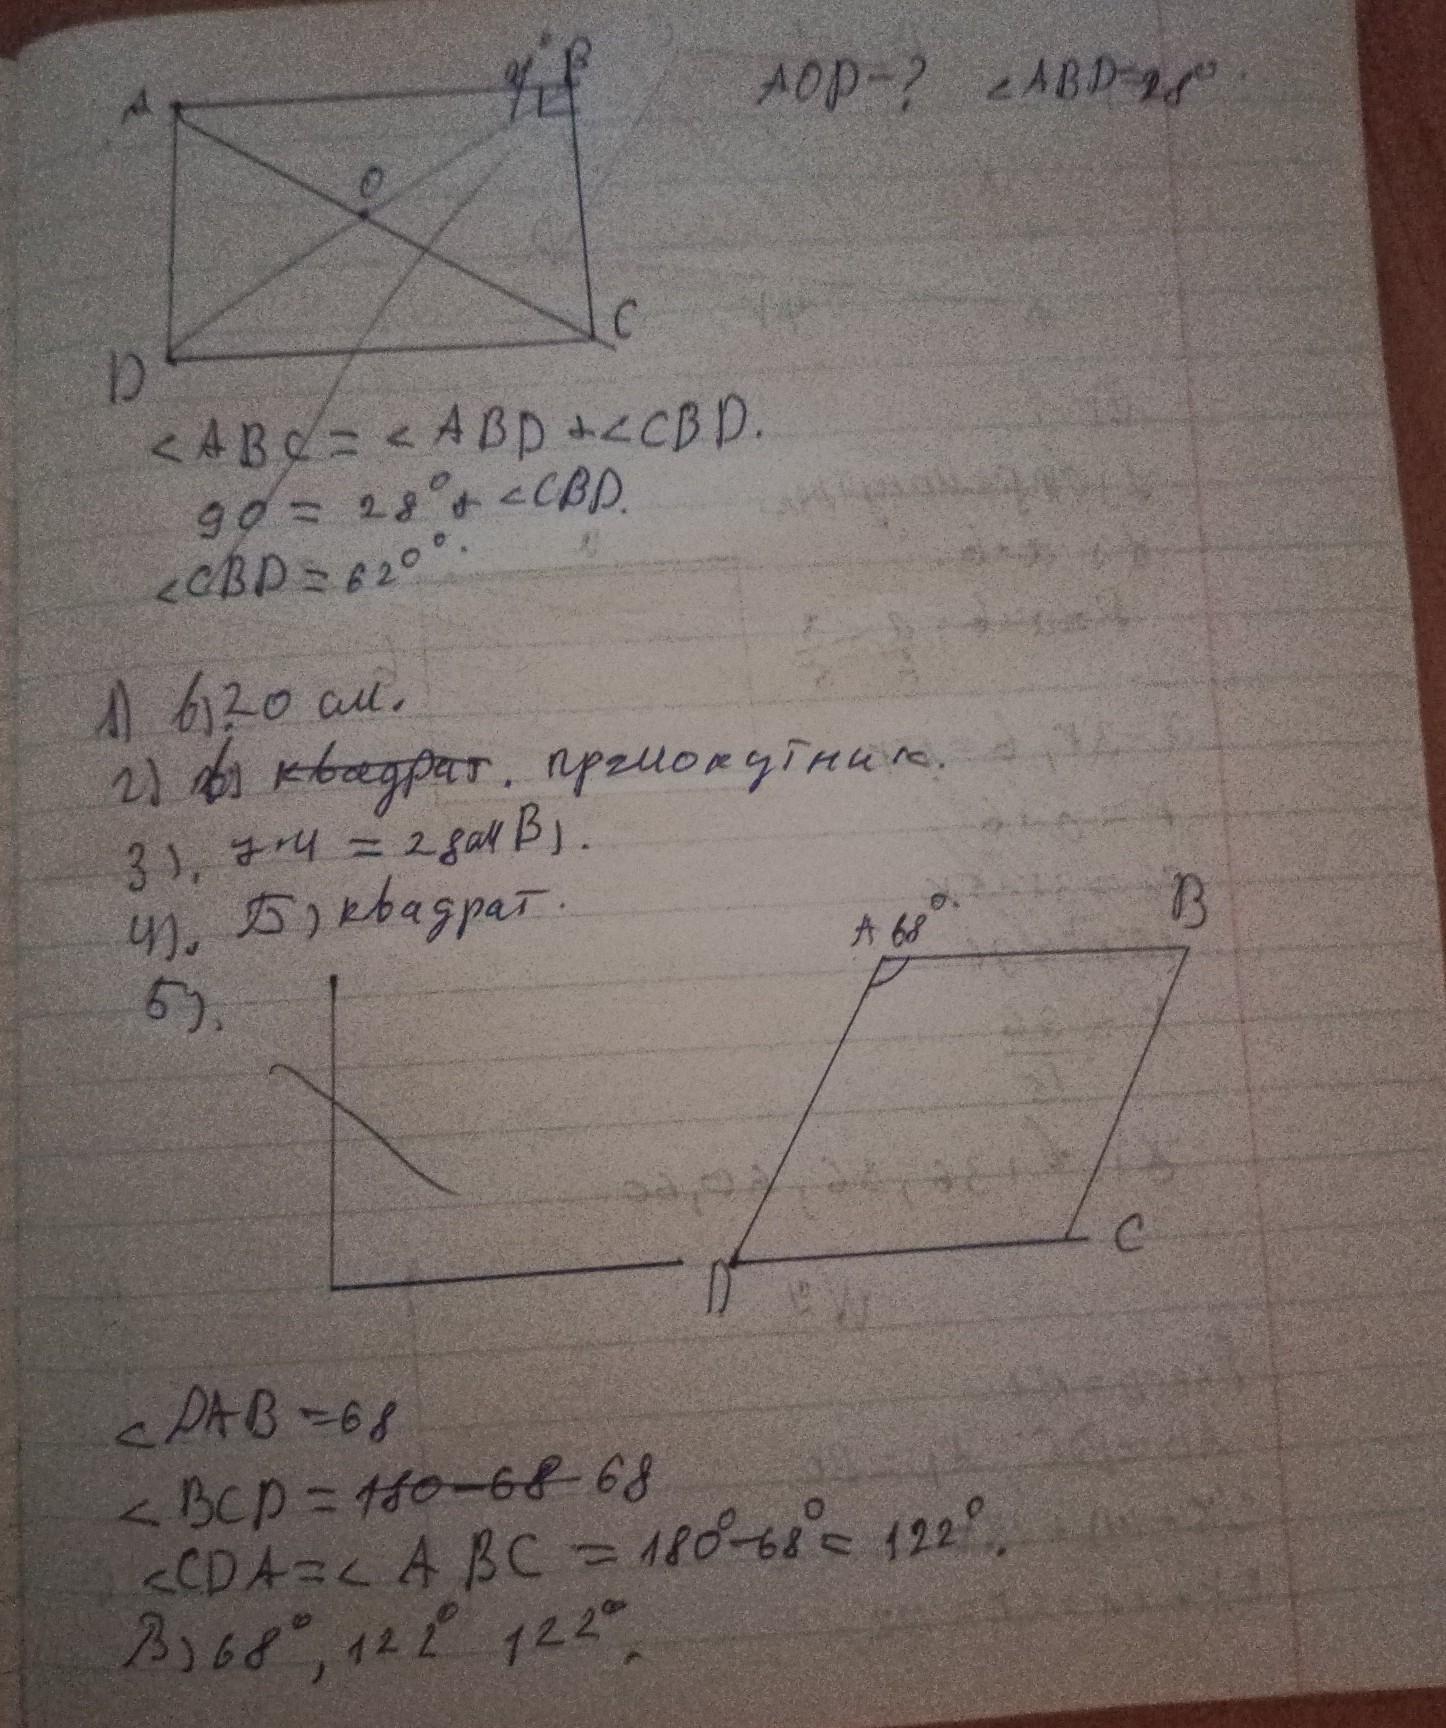 A B
AOD-? <ABD=28°.
O
D C
<ABC=<ABD+<CBD.
90=28°+<CBD.
<CBD=62°°.
1) в) 20 см.
2) в) квадрат. прямокутник.
3). 7·4=28см В).
4). Б) квадрат.
5).
A 68°. B
D C
<DAB=68
<BCD=180-68 68
<CDA=<ABC=180°-68°=122°.
В) 68°, 122° 122°.